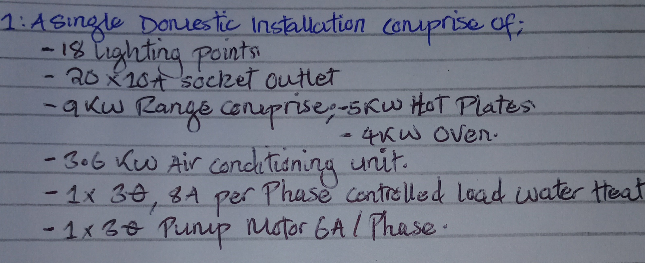 1: A single Domestic Installation comprise of;
- 18 lighting points
- 20 x 10A socket outlet
- 9 KW Range comprise; - 5KW Hot Plates
- 4KW Oven.
- 3.6 KW Air conditioning unit.
- 1 x 3Ɵ, 8A per Phase controlled load water Heat
- 1 x 3Ɵ Pump Motor 6A / Phase.